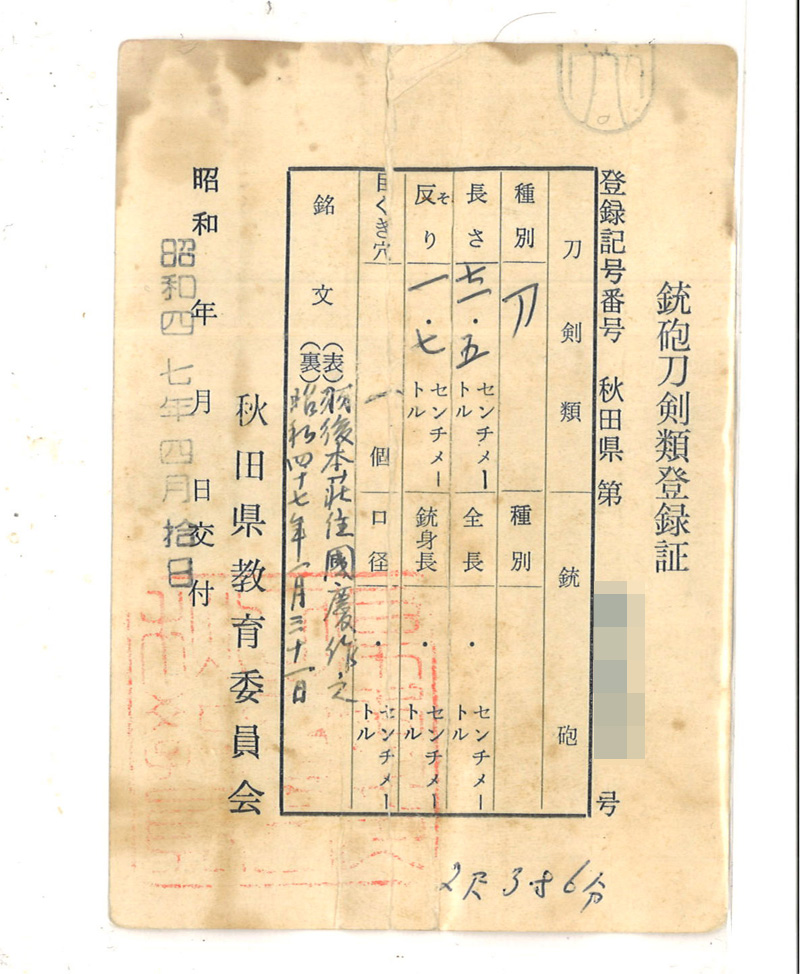 銃砲刀剣類登録証
登録記号番号 秋田県 第 号
刀剣類 銃砲
種別 刀 種別
長さ 七一・五 センチメートル 全長 ・ センチメートル
反り そ 一・七 センチメートル 銃身長 ・ センチメートル
目くぎ穴 一 個 口径 ・ センチメートル
銘文 (表) 羽後本荘住國慶作之
(裏) 昭和四十七年一月三十一日
秋田県教育委員会
昭和 年 月 日交付
昭和四七年四月拾日
2尺3寸6分